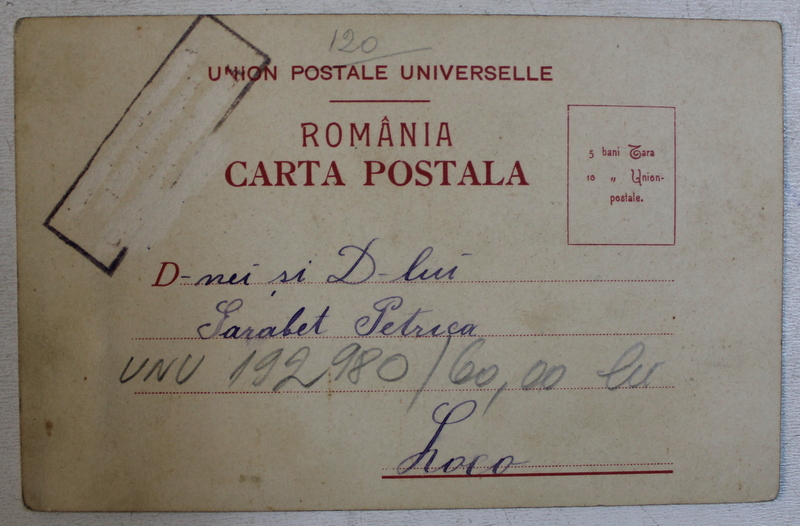 120
UNION POSTALE UNIVERSELLE
ROMÂNIA
CARTA POSTALA
5 bani Tara
10 „ Union-
postale.
D-nei si D-lui
Sarabet Petrica
UNU 192980/60,00 lei
Loco